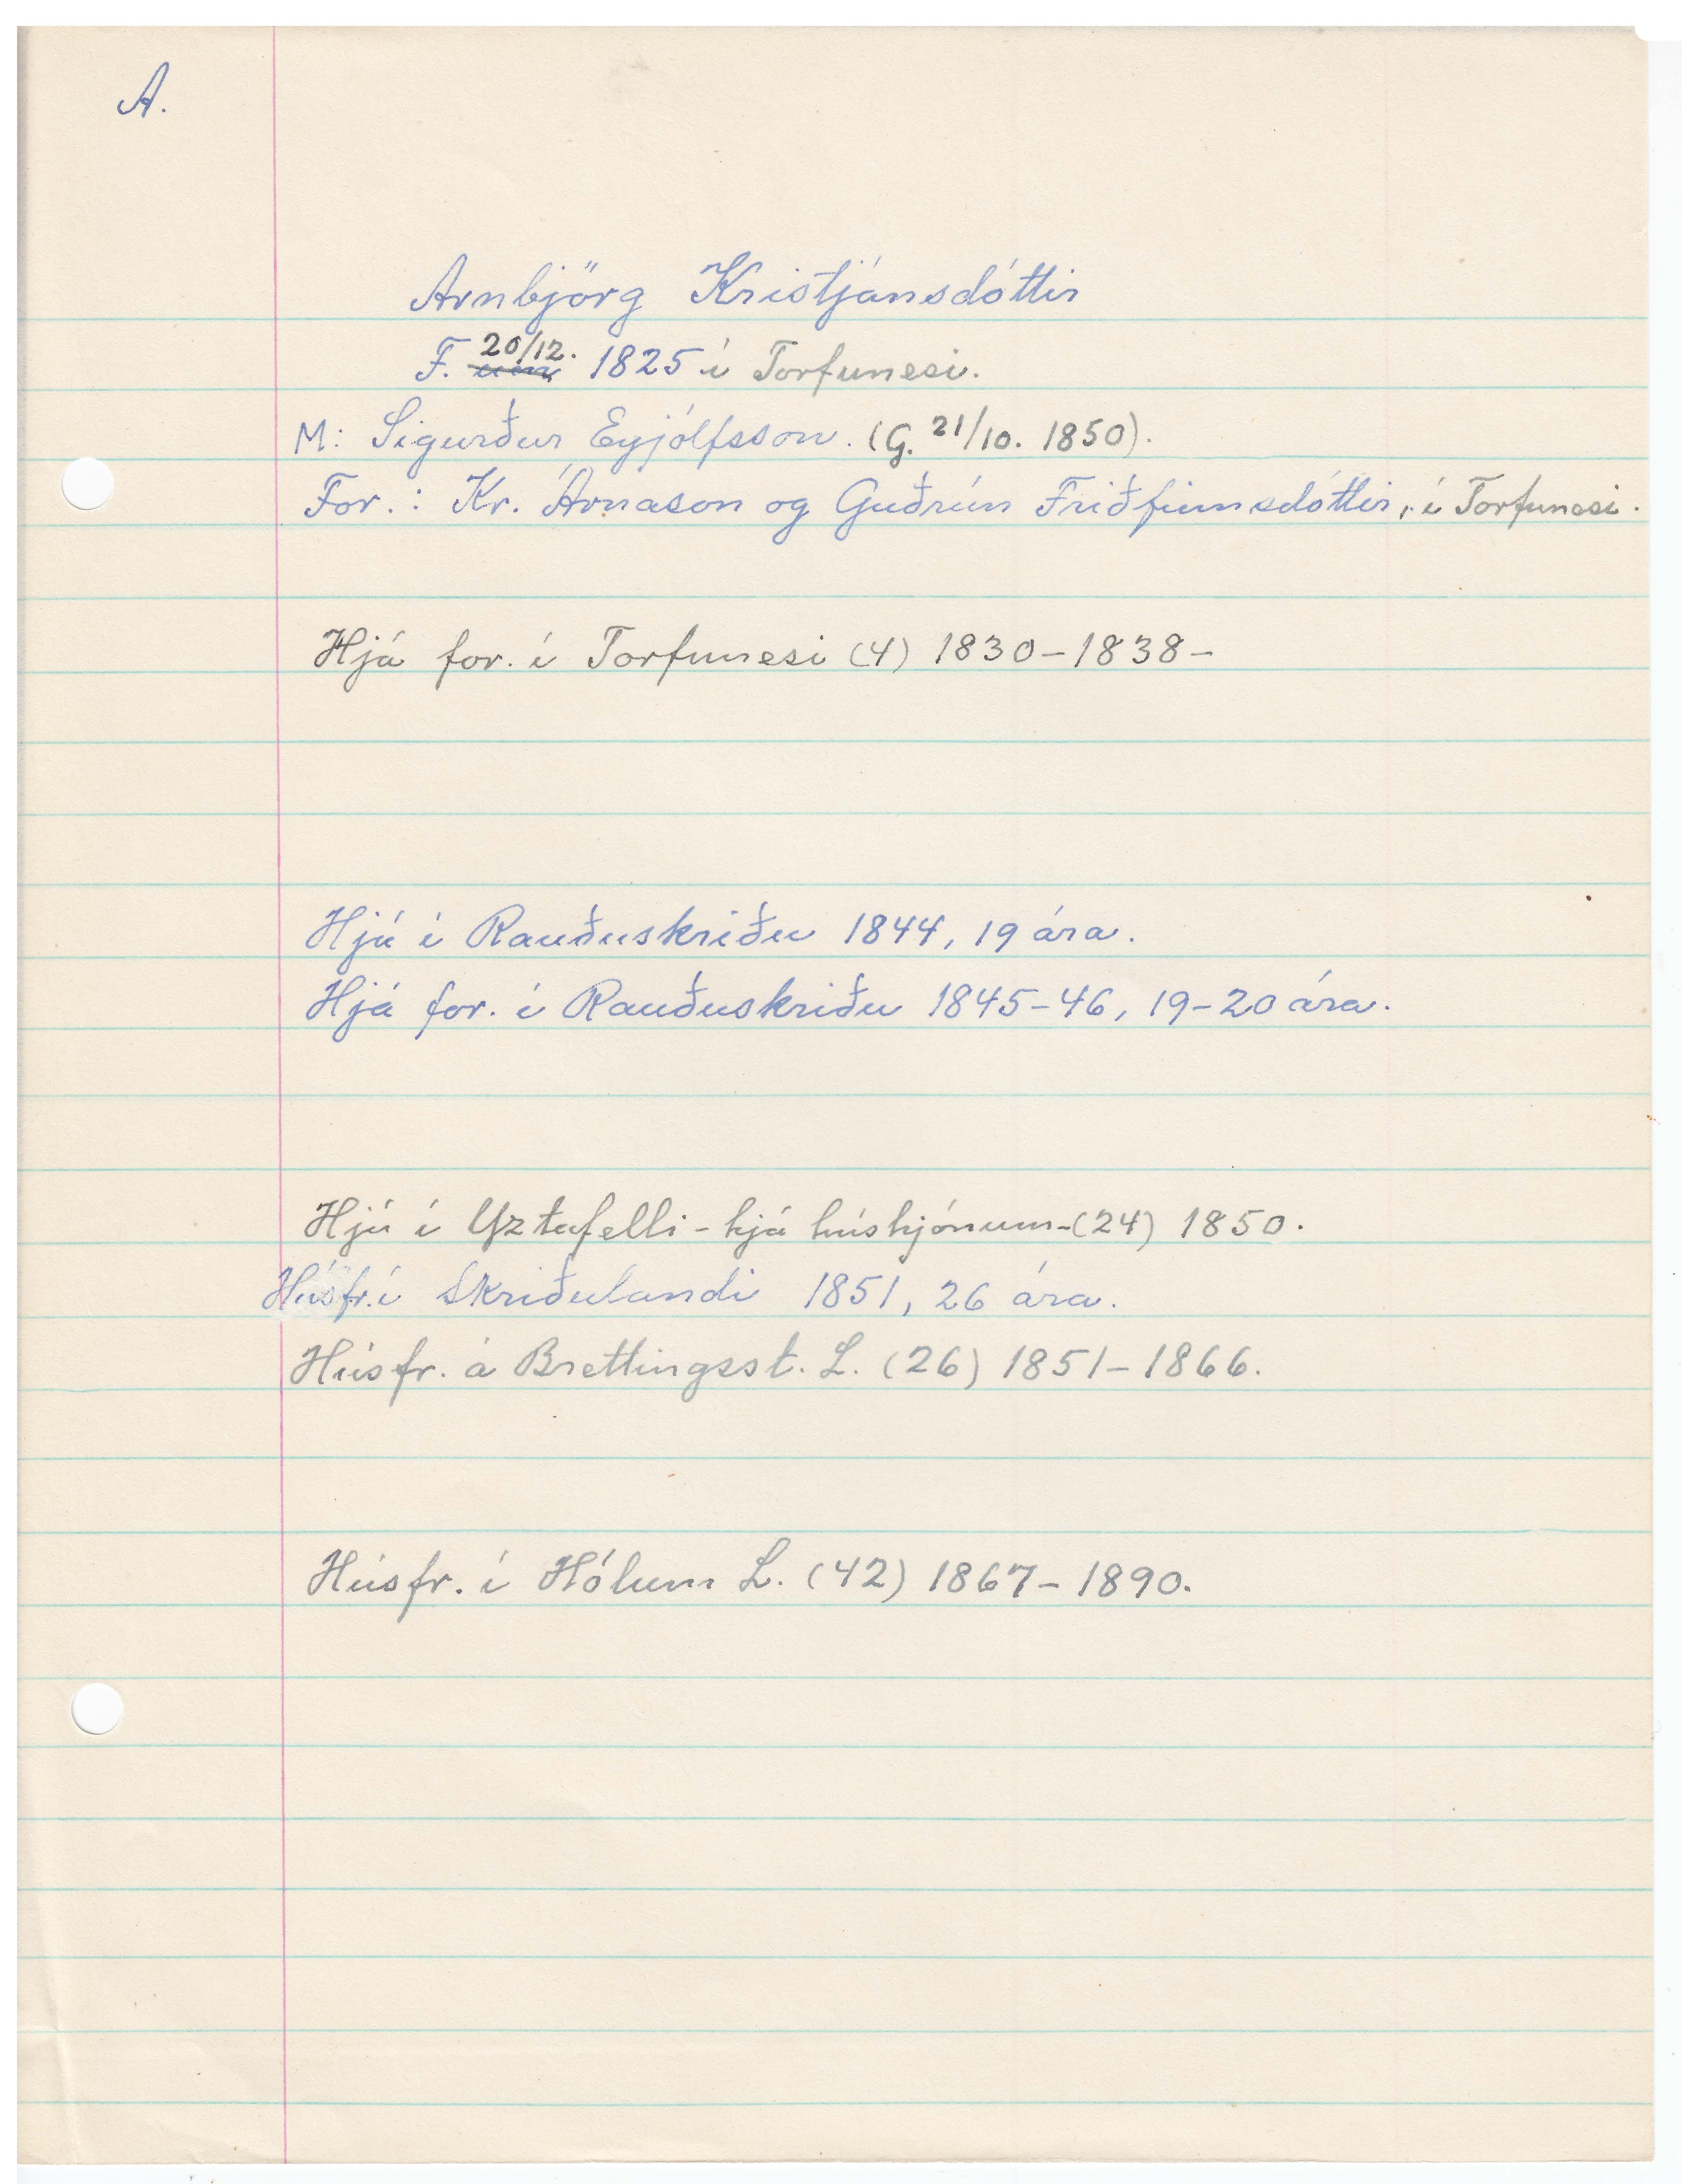 A.
Arnbjörg Kristjánsdóttir
F. um 20/12. 1825 í Torfunesi.
M: Sigurður Eyjólfsson. (G. 21/10. 1850).
For.: Kr. Árnason og Guðrún Friðfinnsdóttir, í Torfunesi.
Hjá for. í Torfunesi (4) 1830-1838-
Hjú í Rauðuskriðu 1844, 19 ára.
Hjá for. í Rauðuskriðu 1845-46, 19-20 ára.
Hjú í Yztafelli - hjá húshjónum - (24) 1850.
Húsfr. í Skriðulandi 1851, 26 ára.
Húsfr. á Brettingsst. L. (26) 1851-1866.
Húsfr. í Hólum L. (42) 1867-1890.